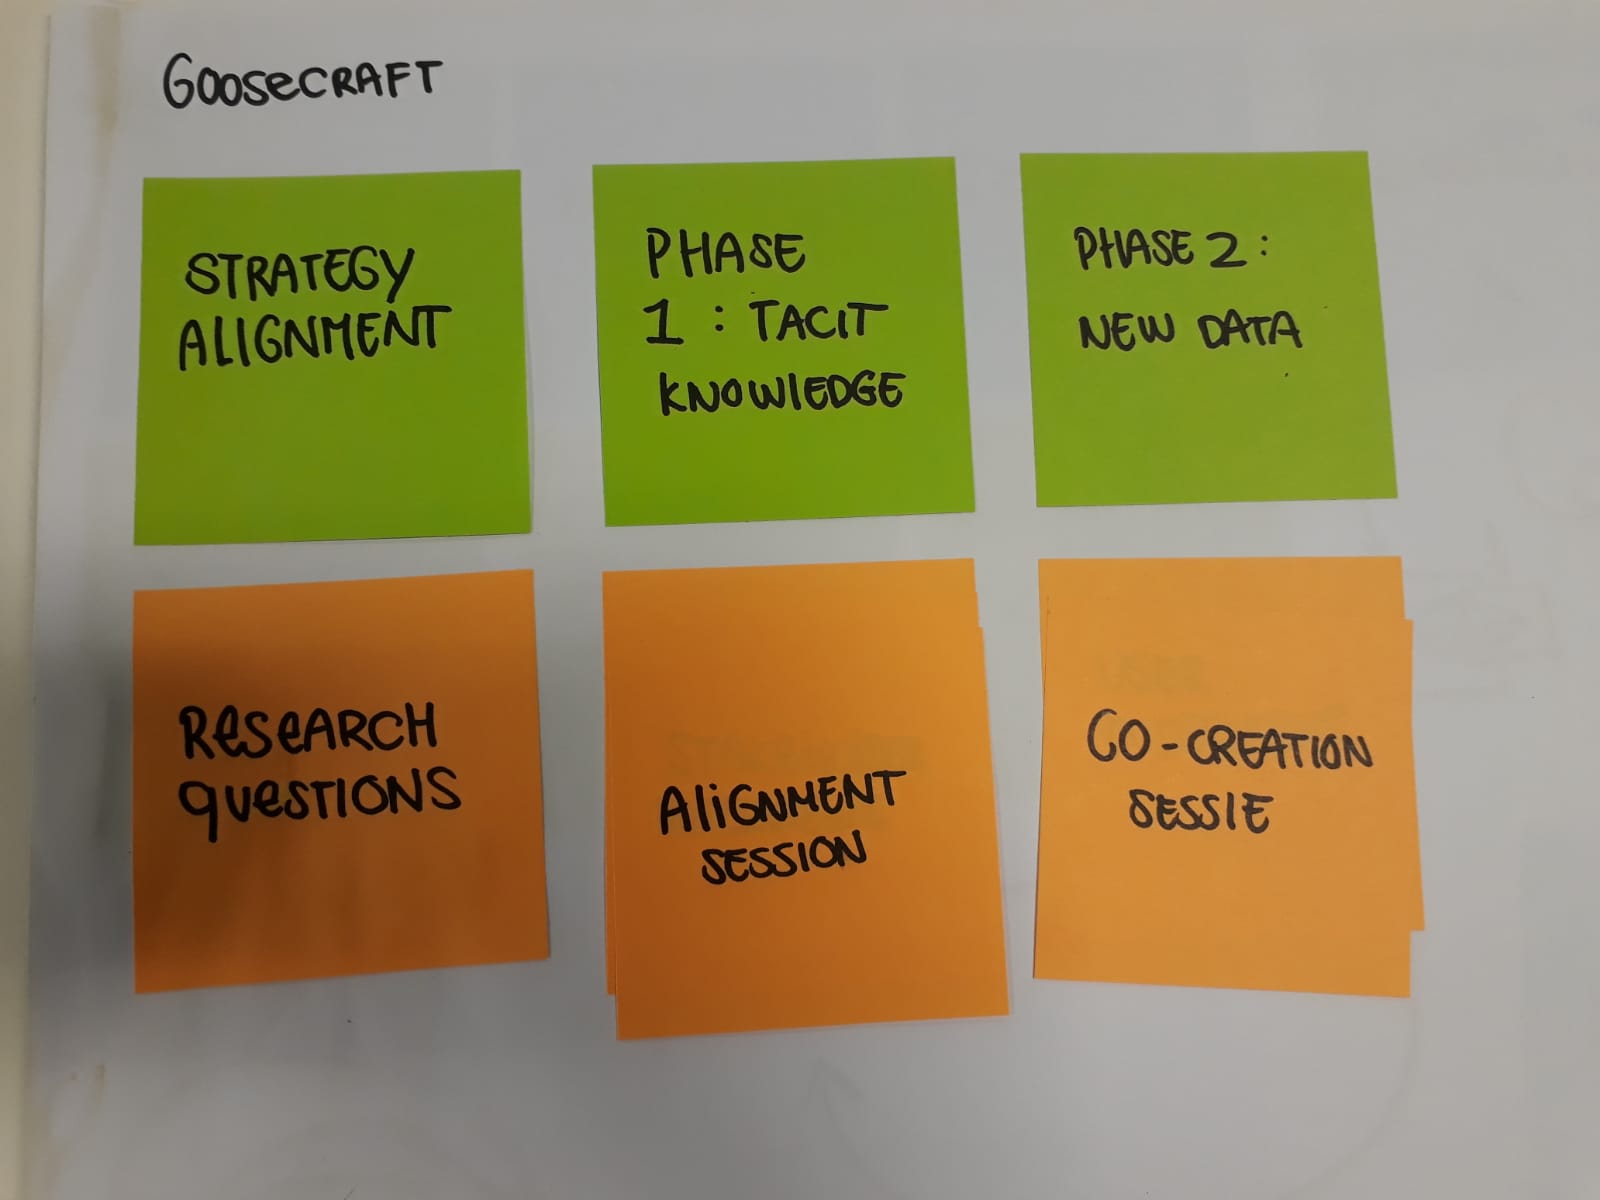 GOOSeCRAFT
STRATEGY
ALIGNMENT
PHASE
1 : TACIT
KNOWLEDGE
PHASE 2 :
NEW DATA
ReSeARCH
QUeSTIONS
ALIGNMENT
SESSION
CO-CREATION
SESSIE